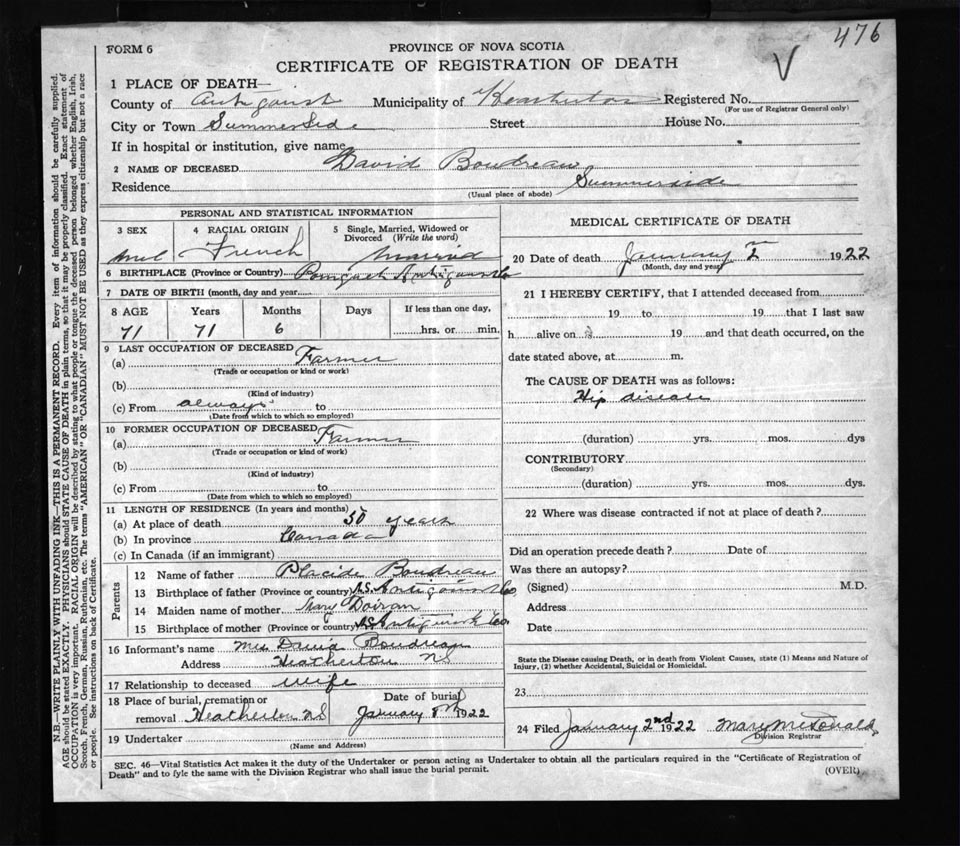 476
FORM 6
PROVINCE OF NOVA SCOTIA
CERTIFICATE OF REGISTRATION OF DEATH
V
1 PLACE OF DEATH—
County of Antigonish Municipality of Heatherton Registered No.
(For use of Registrar General only)
City or Town Summerside Street House No.
If in hospital or institution, give name
2 NAME OF DECEASED David Boudreau
Residence Summerside
(Usual place of abode)
PERSONAL AND STATISTICAL INFORMATION
3 SEX 4 RACIAL ORIGIN 5 Single, Married, Widowed or Divorced (Write the word)
French Married
6 BIRTHPLACE (Province or Country) Pomquet Antigonish Co
7 DATE OF BIRTH (month, day and year)
8 AGE Years Months Days If less than one day,
71 71 6 hrs. or min.
9 LAST OCCUPATION OF DECEASED
(a) Farmer
(Trade or occupation or kind or work)
(b)
(Kind of industry)
(c) From always to
(Date from which to which so employed)
10 FORMER OCCUPATION OF DECEASED
(a) Farmer
(Trade or occupation or kind of work)
(b)
(Kind of industry)
(c) From to
(Date from which to which so employed)
11 LENGTH OF RESIDENCE (In years and months)
(a) At place of death 50 years
(b) In province Canada
(c) In Canada (if an immigrant)
Parents
12 Name of father Placide Boudreau
13 Birthplace of father (Province or country) N.S. Antigonish Co
14 Maiden name of mother Mary Doiran
15 Birthplace of mother (Province or country) N.S. Antigonish Co
16 Informant's name Mrs David Boudreau
Address Heatherton NS
17 Relationship to deceased wife
18 Place of burial, cremation or removal Heatherton NS Date of burial January 8th 1922
19 Undertaker
(Name and Address)
MEDICAL CERTIFICATE OF DEATH
20 Date of death January 1922
(Month, day and year)
21 I HEREBY CERTIFY, that I attended deceased from
19 to 19 that I last saw
h alive on 19 and that death occurred, on the
date stated above, at m.
The CAUSE OF DEATH was as follows:
Hip disease
(duration) yrs. mos. dys
CONTRIBUTORY
(Secondary)
(duration) yrs. mos. dys.
22 Where was disease contracted if not at place of death?
Did an operation precede death? Date of
Was there an autopsy?
(Signed) M.D.
Address
Date
State the Disease causing Death, or in death from Violent Causes, state (1) Means and Nature of
Injury, (2) whether Accidental, Suicidal or Homicidal.
23
24 Filed January 2nd 1922 Mary McDonald
Division Registrar
SEC. 46—Vital Statistics Act makes it the duty of the Undertaker or person acting as Undertaker to obtain all the particulars required in the "Certificate of Registration of
Death" and to fyle the same with the Division Registrar who shall issue the burial permit.
(OVER)
N.B.—WRITE PLAINLY WITH UNFADING INK—THIS IS A PERMANENT RECORD. Every item of information should be carefully supplied.
AGE should be stated EXACTLY. PHYSICIANS should STATE CAUSE OF DEATH in plain terms, so that it may be properly classified. Exact statement of
OCCUPATION is very important. RACIAL ORIGIN will be described by stating to what people or tongue the deceased person belonged, whether English, Irish,
Scotch, French, German, Russian, Ruthenian, etc. The terms "AMERICAN" OR "CANADIAN" MUST NOT BE USED as they express citizenship but not a race
or people. See instructions on back of Certificate.